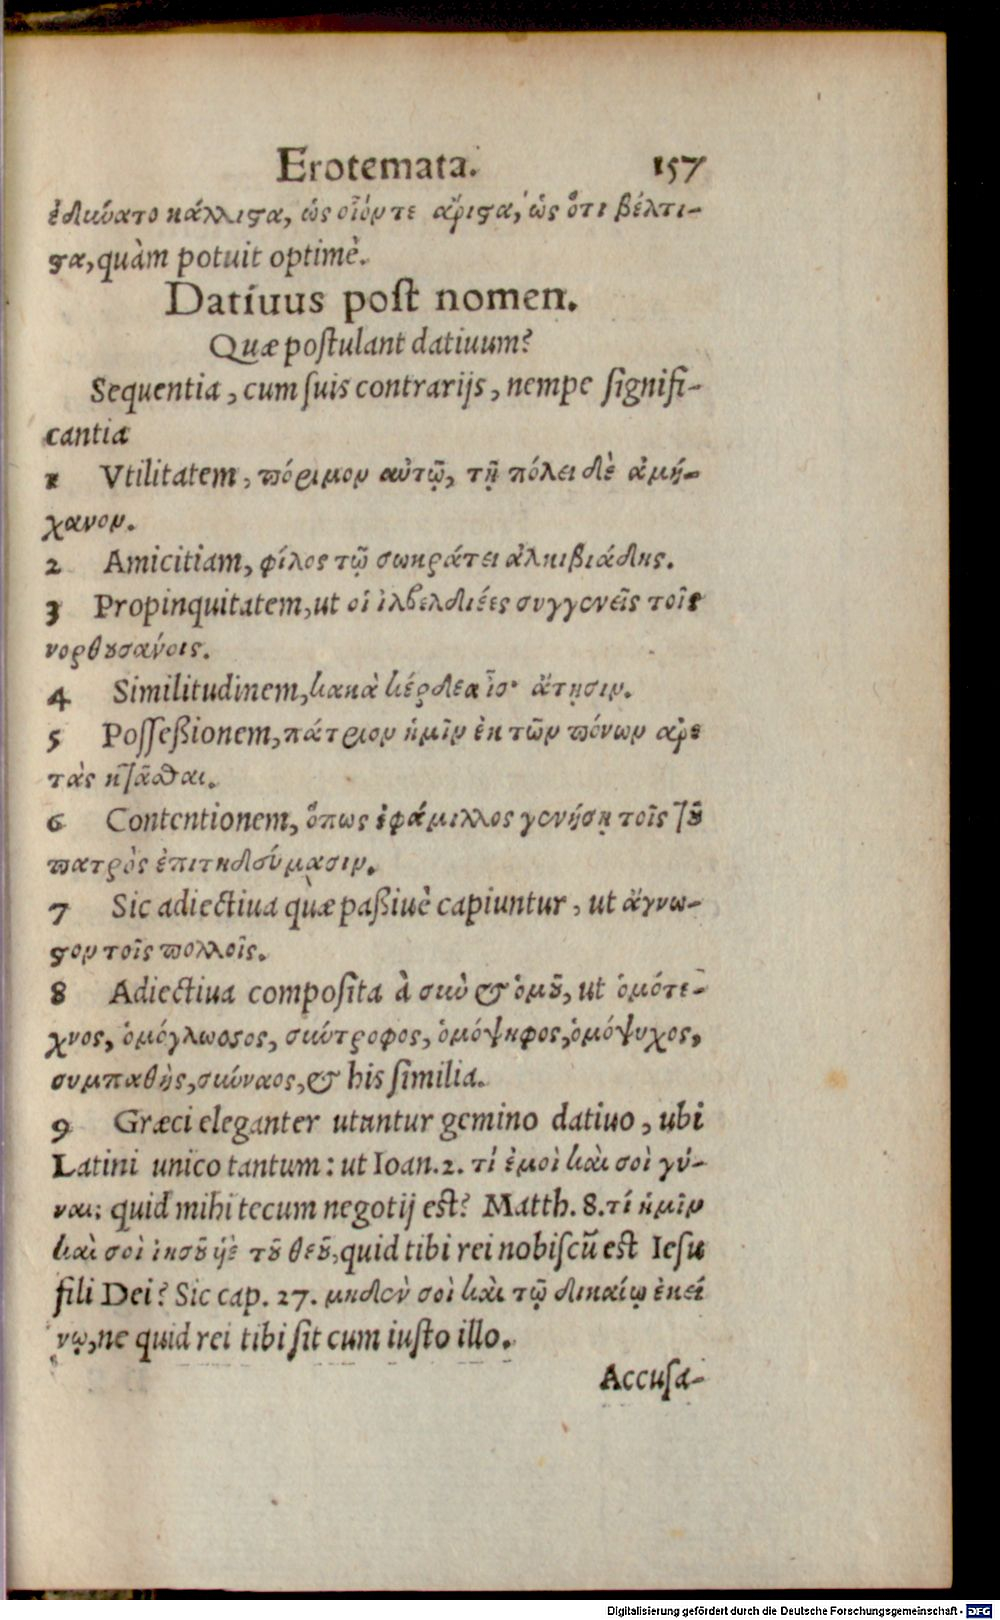 Erotemata. 157
ἐδύνατο κάλλιςα, ὡς οἷόν τε ἄριςα, ὡς ὅτι βέλτι-
ςα, quàm potuit optimè.
Datiuus post nomen.
Quæ postulant datiuum?
Sequentia, cum suis contrarijs, nempe signifi-
cantia
1 Vtilitatem, πόριμον αὐτῷ, τῇ πόλει δὲ ἀμή-
χανον.
2 Amicitiam, φίλος τῷ σωκράτει ἀλκιβιάδης.
3 Propinquitatem, ut οἱ συγγενεῖς τοῖς
4 Similitudinem, κακὰ κέρδεα ἶσ' ἄτῃσιν.
5 Possessionem, πάτριον ἡμῖν ἐκ τῶν πόνων ἀρε
τὰς κτᾶσθαι.
6 Contentionem, ὅπως ἐφάμιλλος γενήσῃ τοῖς τȣ͂
πατρὸς ἐπιτηδεύμασιν.
7 Sic adiectiua quæ passiuè capiuntur, ut ἄγνω-
ςον τοῖς πολλοῖς.
8 Adiectiua composita à σὺν & ὁμȣ͂, ut ὁμότε-
χνος, ὁμόγλωσσος, σύντροφος, ὁμόψηφος, ὁμόψυχος,
συμπαθὴς, σύνναος, & his similia.
9 Græci eleganter utuntur gemino datiuo, ubi
Latini unico tantum: ut Ioan. 2. τί ἐμοὶ καὶ σοὶ γύ-
ναι: quid mihi tecum negotij est? Matth. 8. τί ἡμῖν
καὶ σοὶ ἰησȣ͂ ὑὲ τȣ͂ θεȣ͂, quid tibi rei nobiscū est Iesu
fili Dei? Sic cap. 27. μηδὲν σοὶ καὶ τῷ δικαίῳ ἐκεί
νῳ, ne quid rei tibi sit cum iusto illo.
Accusa-
Digitalisierung gefördert durch die Deutsche Forschungsgemeinschaft - DFG